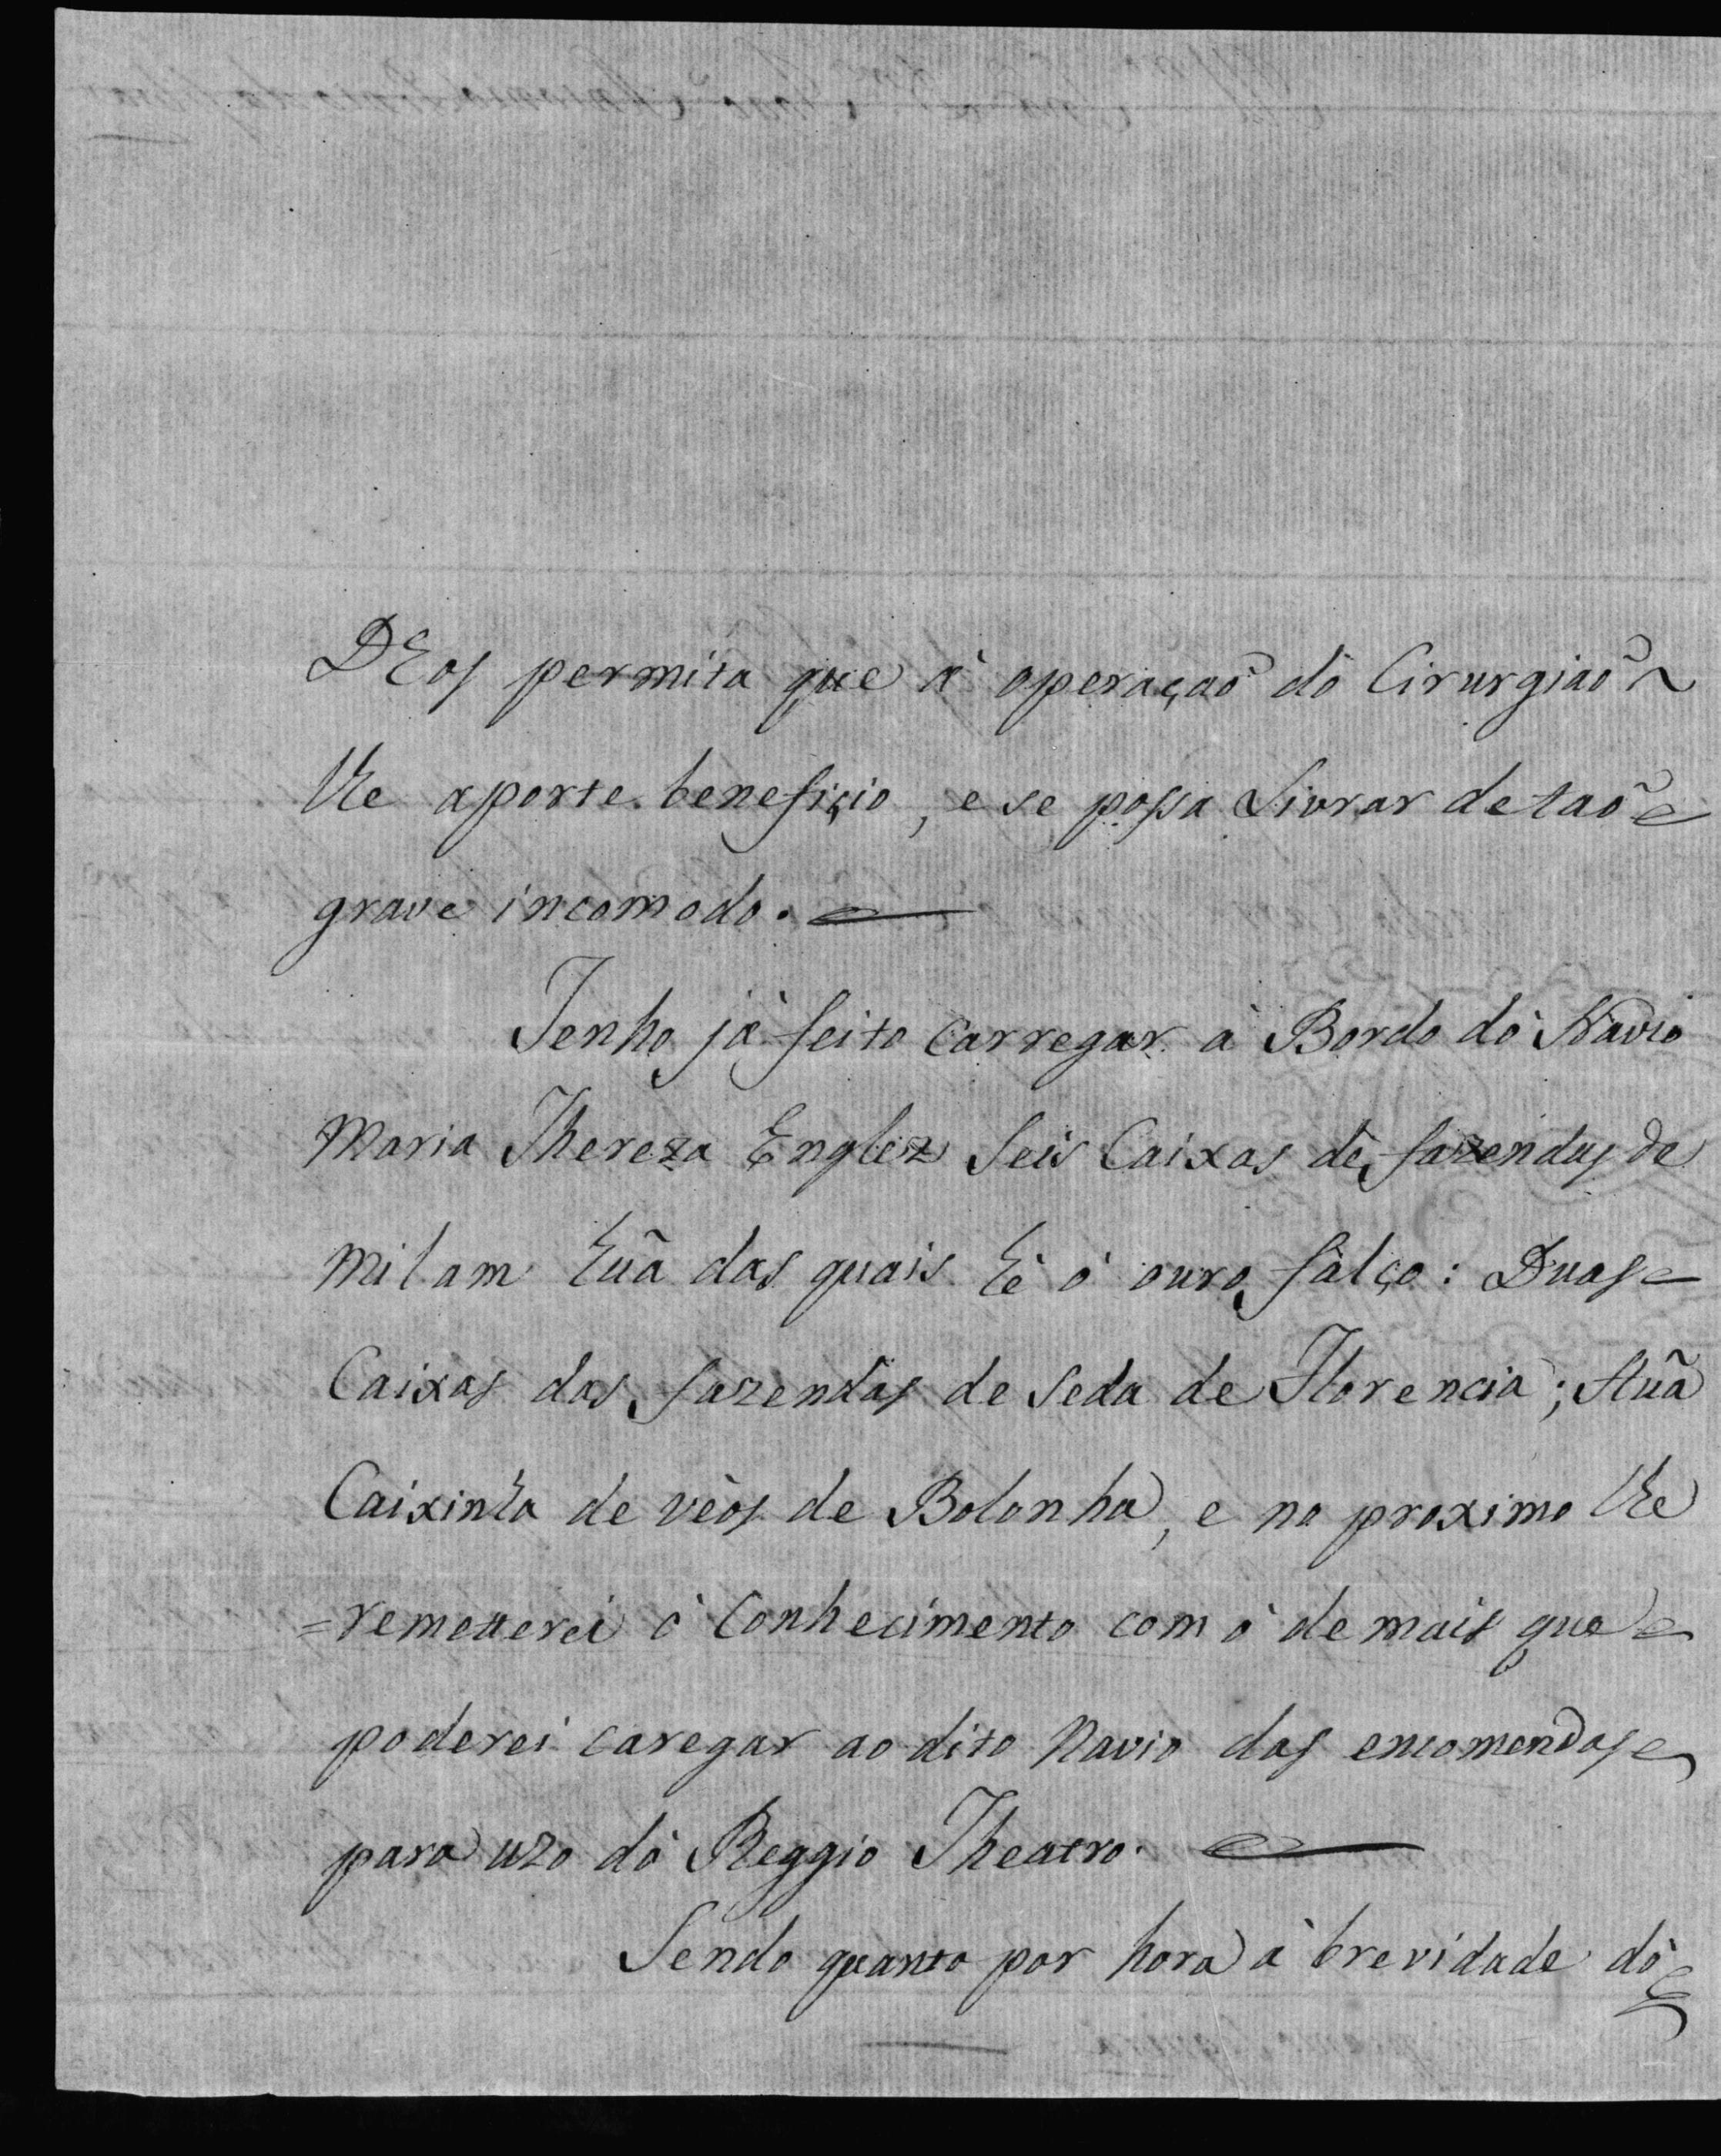 DEos permita que à operaçaõ dò Cirurgiaõ ~
lhe aporte beneficio, e se possa Livrar de taõ
grave incomodo.
Tenho jà feito carregar à Bordo dò Navio
Maria Thereza Englez Seis Caixas de fazendas de
Milam hũa das quais hè ò ouro falço: Duas
Caixas das fazendas de Seda de Florencia; Hũa
Caixinha de vèos de Bolonha, e no proximo lhe
=remetterei ò Conhecimento com ò de mais que
poderei caregar ao dito Navio das encomendas
para uzo dò Reggio Theatro.
Sendo quanto por hora à brevidade dò